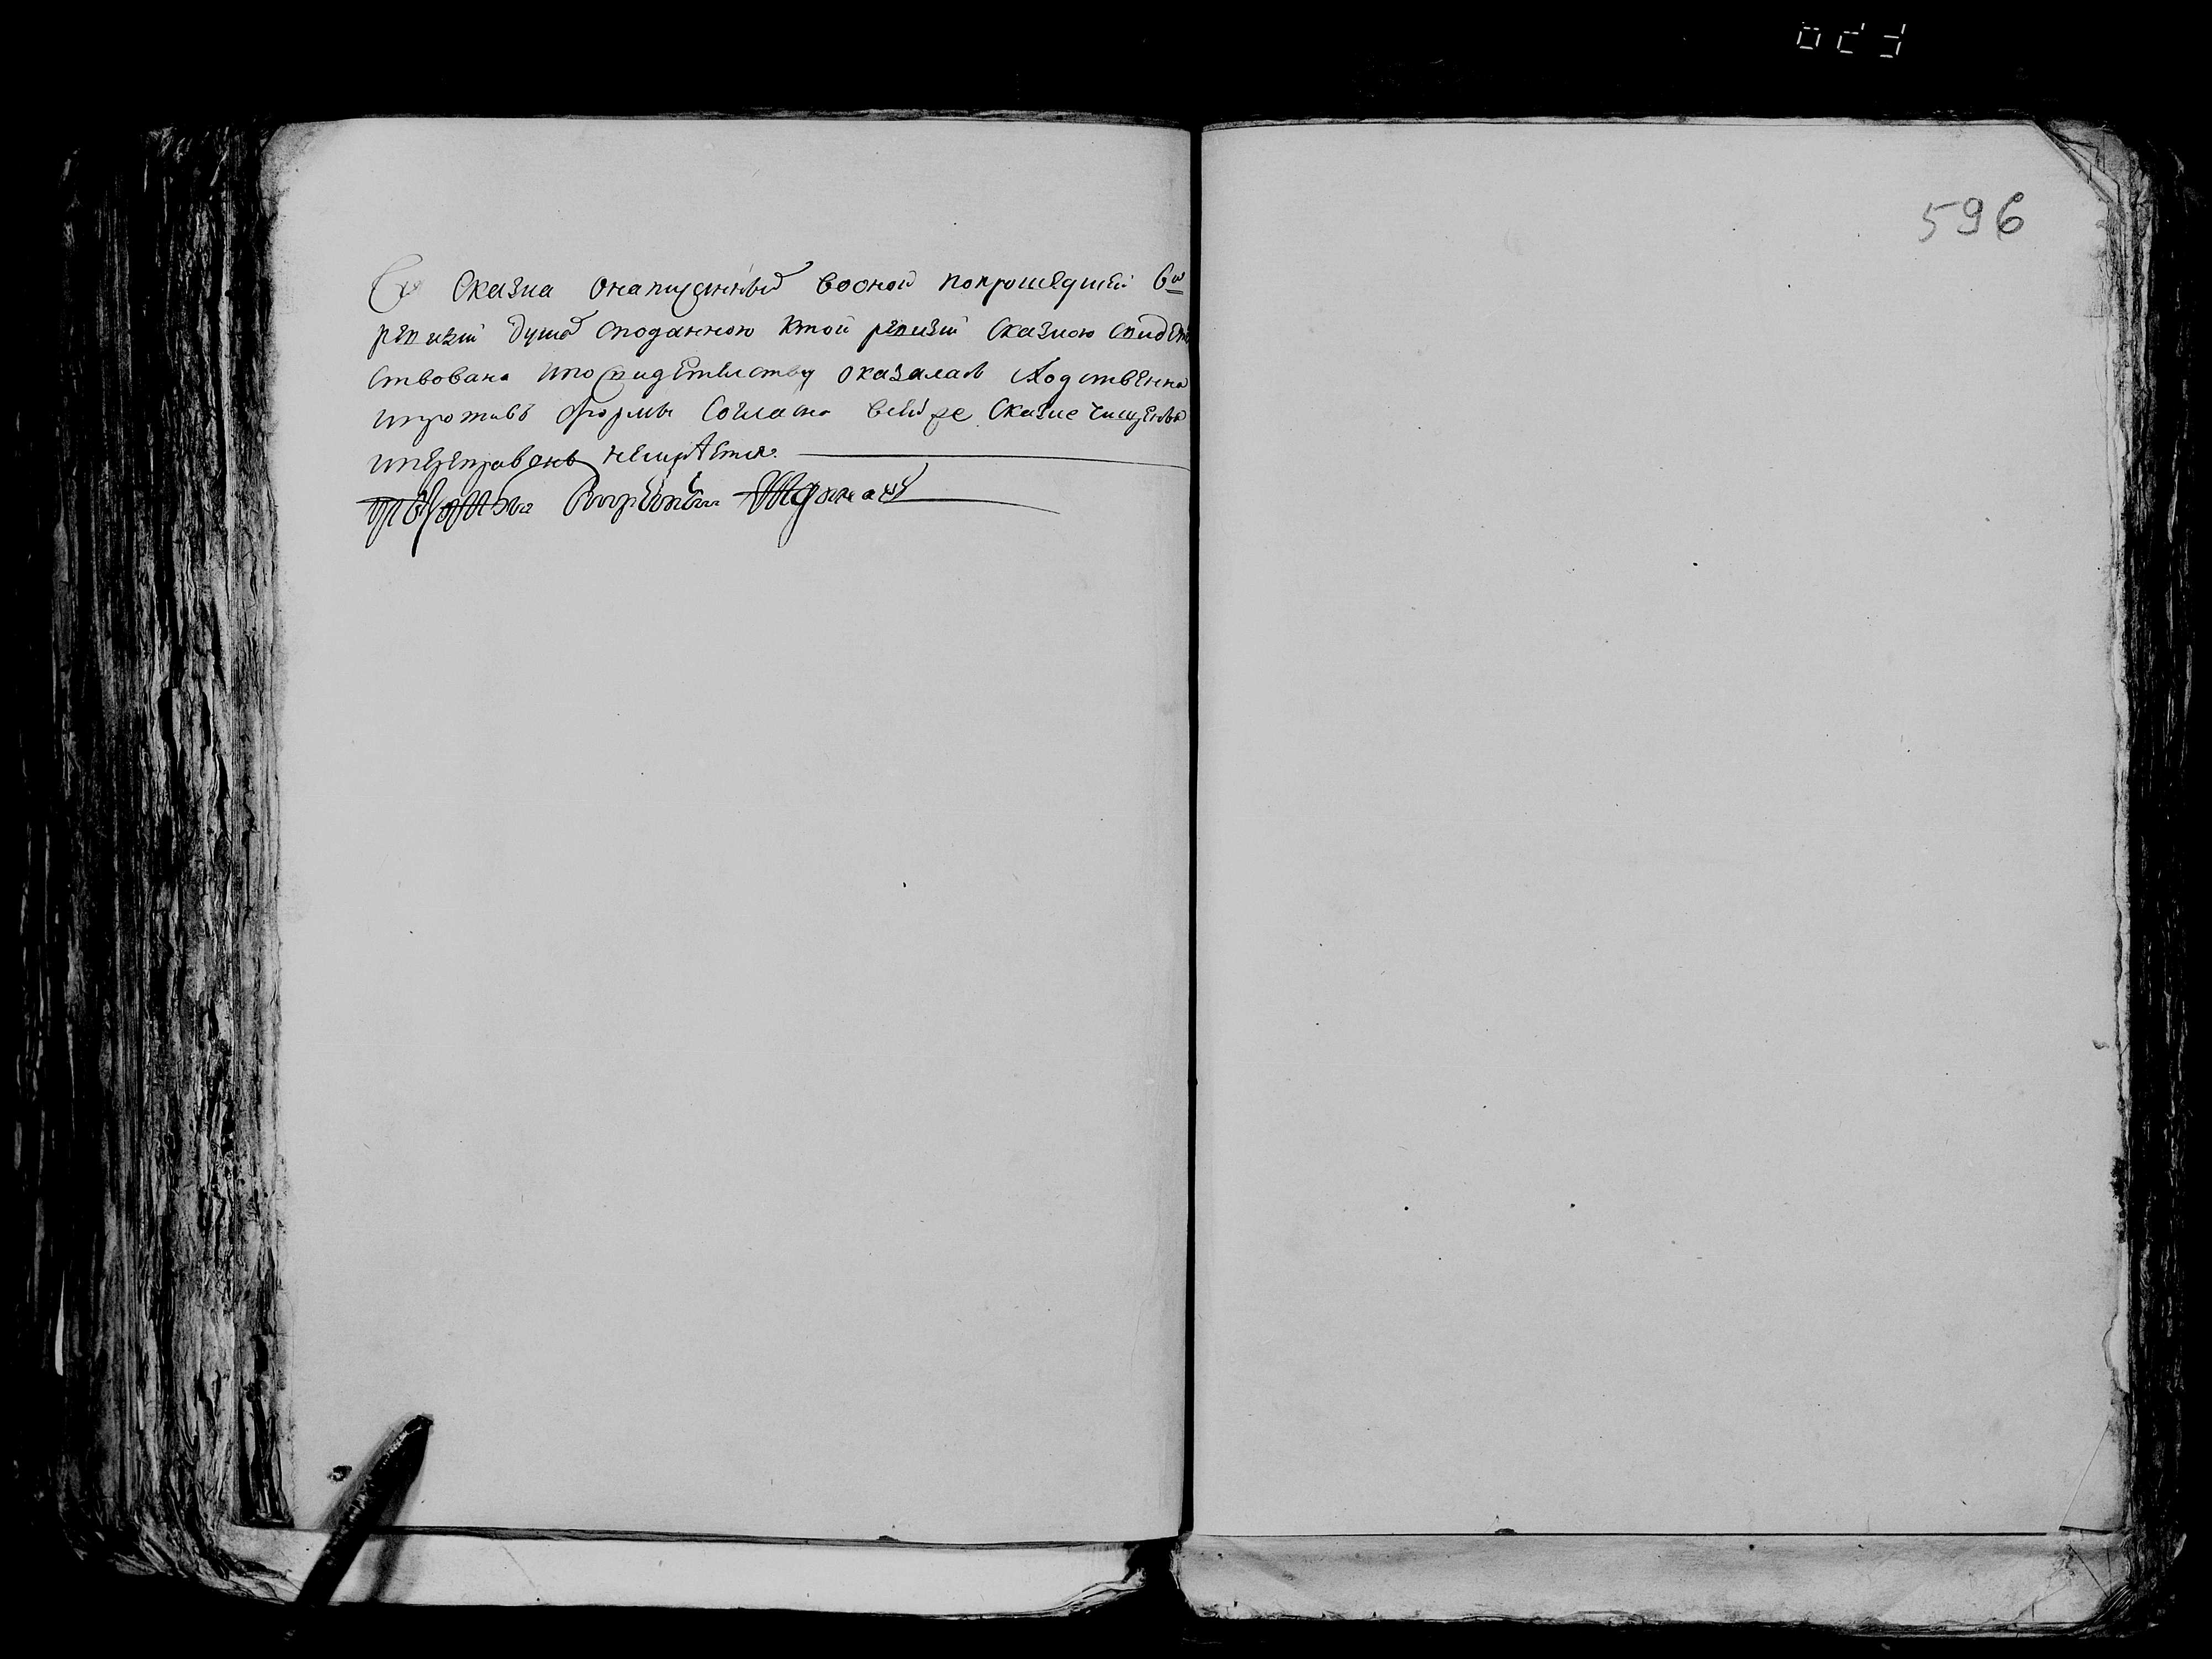 596
Сия Сказка онаписанных вооной попрошедшей 6й
ревизии душах споданною ктой ревизии Сказкою свидетель
ствована ипо свидетельству оказалась сходственна
ипротивъ формы Согласна вейже Сказке чищеныхъ
ипереправокъ неимеется